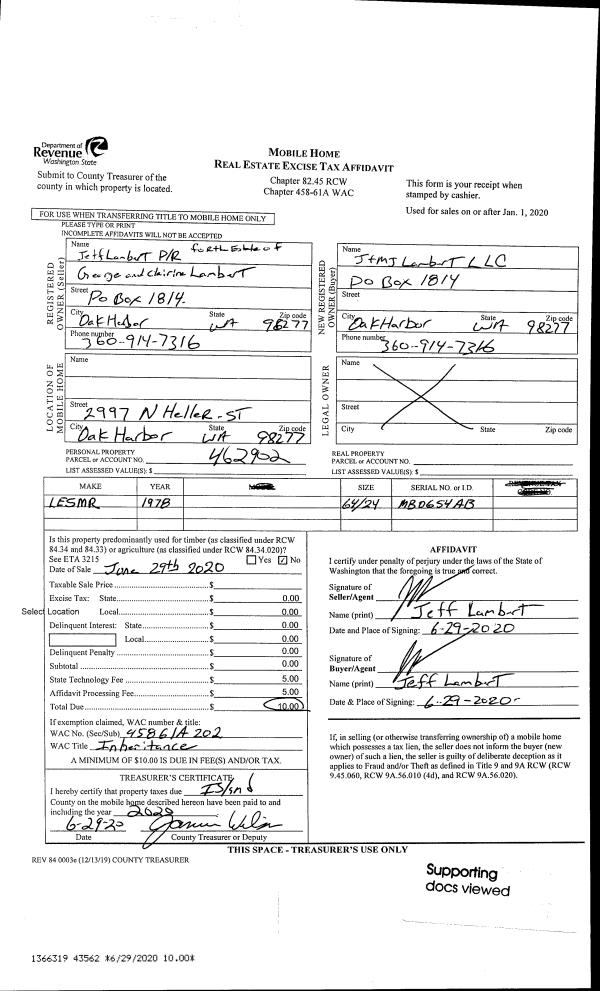 Department of
Revenue
Washington State
Submit to County Treasurer of the
county in which property is located.
MOBILE HOME
REAL ESTATE EXCISE TAX AFFIDAVIT
Chapter 82.45 RCW
Chapter 458-61A WAC
This form is your receipt when
stamped by cashier.
Used for sales on or after Jan. 1, 2020
FOR USE WHEN TRANSFERRING TITLE TO MOBILE HOME ONLY
PLEASE TYPE OR PRINT
INCOMPLETE AFFIDAVITS WILL NOT BE ACCEPTED
REGISTERED
OWNER (Seller)
Name
Jeff Lambert P/R for the Estate of
George and Clairine Lambert
Street
Po Box 1814
City State Zip code
Oak Harbor WA 98277
Phone number
360-914-7316
NEW REGISTERED
OWNER (Buyer)
Name
J+MJ Lambert LLC
Po Box 1814
Street
City State Zip code
Oak Harbor WA 98277
Phone number
360-914-7316
LOCATION OF
MOBILE HOME
Name
Street
2997 N Heller-ST
City State Zip code
Oak Harbor WA 98277
LEGAL OWNER
Name
Street
City State Zip code
PERSONAL PROPERTY
PARCEL or ACCOUNT NO. 462902
LIST ASSESSED VALUE(S): $
REAL PROPERTY
PARCEL or ACCOUNT NO.
LIST ASSESSED VALUE(S): $
MAKE YEAR SIZE SERIAL NO. or I.D.
LESMR 1978 64/24 MBD654AB
Is this property predominantly used for timber (as classified under RCW
84.34 and 84.33) or agriculture (as classified under RCW 84.34.020)?
See ETA 3215 Yes ✓ No
Date of Sale June 29th 2020
Taxable Sale Price $
Excise Tax: State $ 0.00
Select Location Local $ 0.00
Delinquent Interest: State $ 0.00
Local $ 0.00
Delinquent Penalty $ 0.00
Subtotal $ 0.00
State Technology Fee $ 5.00
Affidavit Processing Fee $ 5.00
Total Due $ 10.00
If exemption claimed, WAC number & title:
WAC No. (Sec/Sub) 45861A 202
WAC Title Inheritance
A MINIMUM OF $10.00 IS DUE IN FEE(S) AND/OR TAX.
TREASURER'S CERTIFICATE
I hereby certify that property taxes due Island
County on the mobile home described hereon have been paid to and
including the year 2020
6-29-20
Date County Treasurer or Deputy
AFFIDAVIT
I certify under penalty of perjury under the laws of the State of
Washington that the foregoing is true and correct.
Signature of
Seller/Agent
Name (print) Jeff Lambert
Date and Place of Signing: 6-29-2020
Signature of
Buyer/Agent
Name (print) Jeff Lambert
Date & Place of Signing: 6-29-2020
If, in selling (or otherwise transferring ownership of) a mobile home
which possesses a tax lien, the seller does not inform the buyer (new
owner) of such a lien, the seller is guilty of deliberate deception as it
applies to Fraud and/or Theft as defined in Title 9 and 9A RCW (RCW
9.45.060, RCW 9A.56.010 (4d), and RCW 9A.56.020).
THIS SPACE - TREASURER'S USE ONLY
REV 84 0003e (12/13/19) COUNTY TREASURER
Supporting
docs viewed
1366319 43562 *6/29/2020 10.00*